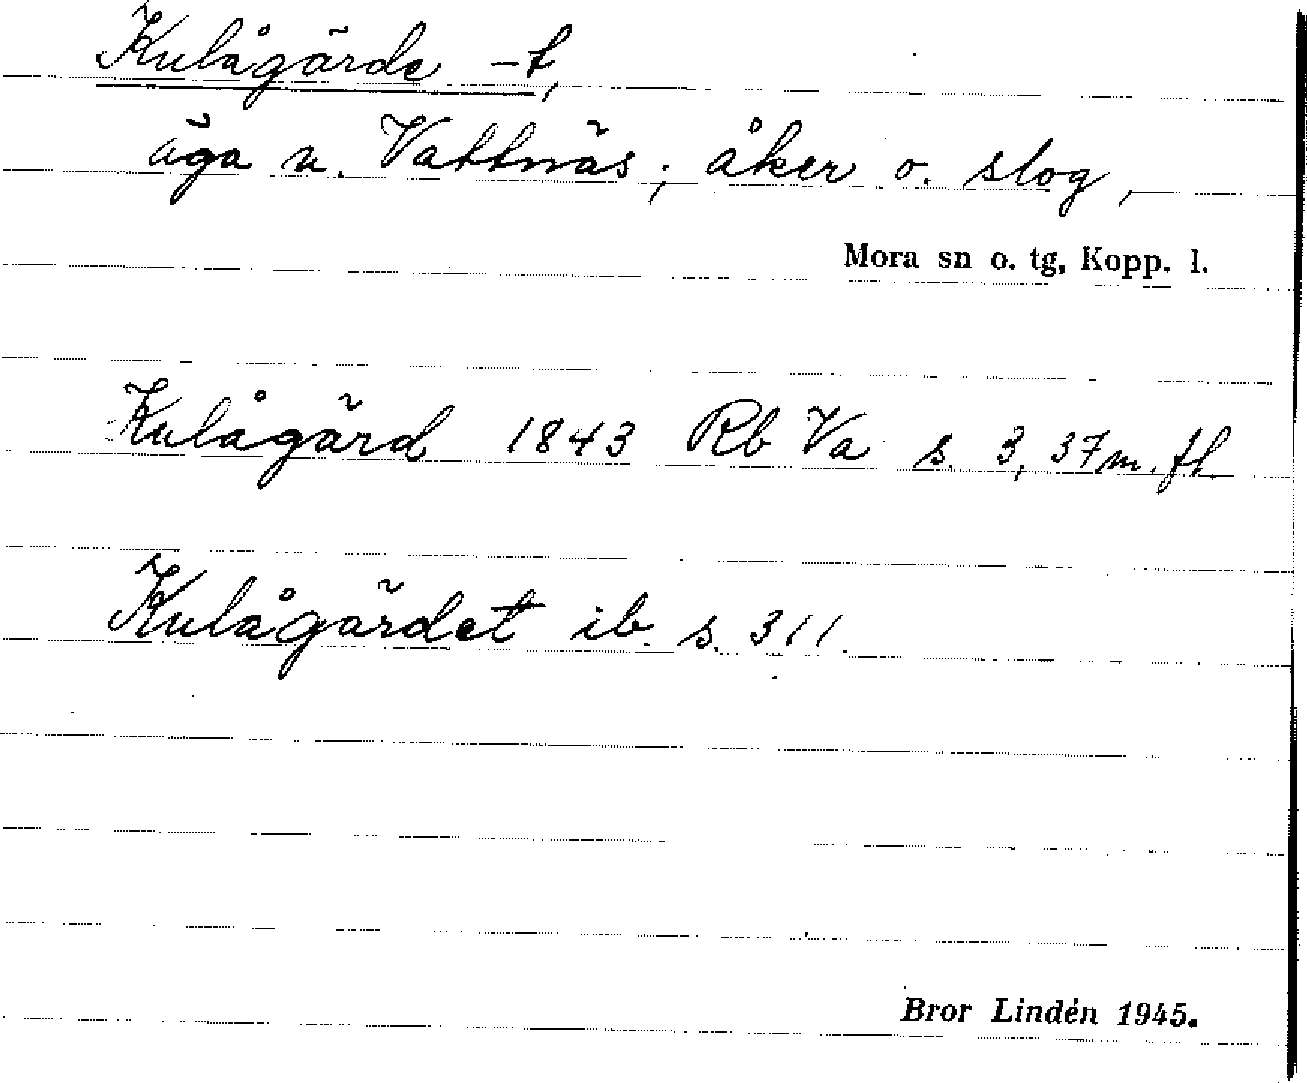 Kulågärde -t,
äga u. Vattnäs; åker o. slog,
Mora sn o. tg, Kopp. l.
Kulågärd 1843 Rb Va s. 3, 37 m. fl.
Kulågärdet ib. s. 311.
Bror Lindén 1945.